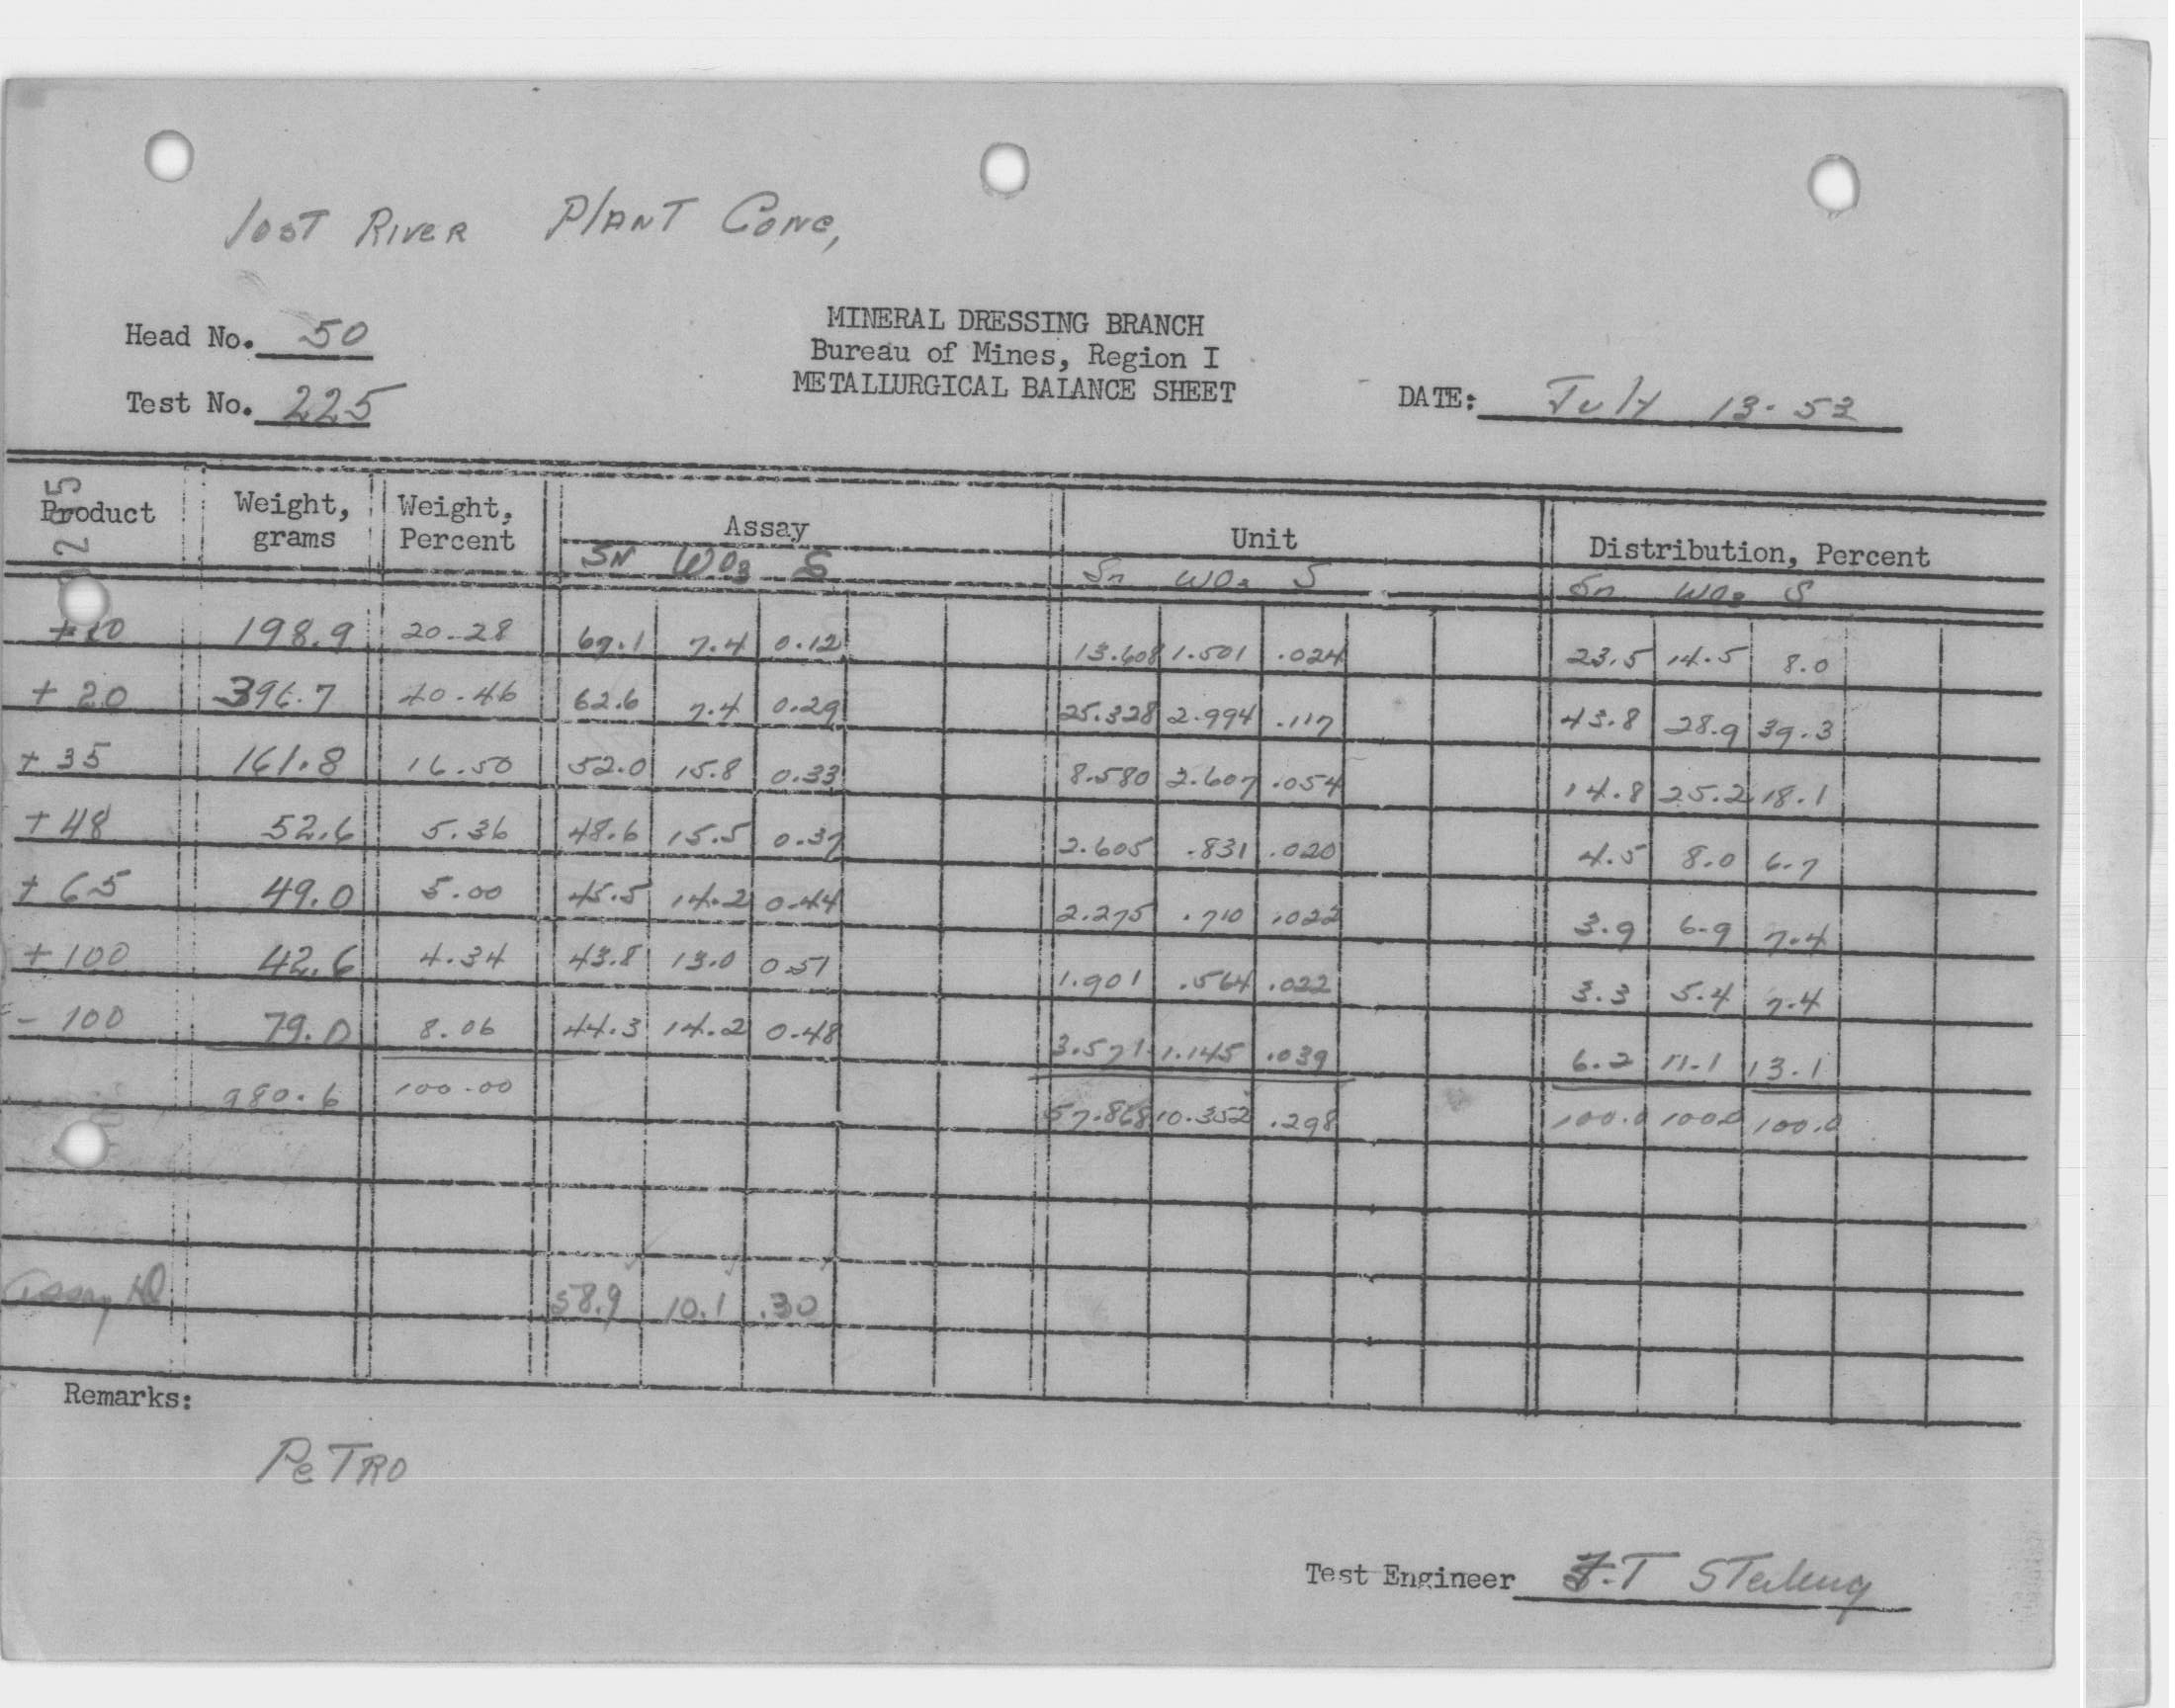 lost River Plant Conc,
MINERAL DRESSING BRANCH
Head No. 50
Bureau of Mines, Region I
METALLURGICAL BALANCE SHEET
Test No. 225
DATE: July 13-53
Product Weight, grams Weight, Percent Assay Unit Distribution, Percent
SN WO3 S Sn WO3 S Sn WO3 S
198.9 20.28 67.1 7.4 0.12 13.608 1.501 .024 23.5 14.5 8.0
+ 20 396.7 40.46 62.6 7.4 0.29 25.328 2.994 .117 43.8 28.9 39.3
+ 35 161.8 16.50 52.0 15.8 0.33 8.580 2.607 .054 14.8 25.2 18.1
+ 48 52.6 5.36 48.6 15.5 0.37 2.605 .831 .020 4.5 8.0 6.7
+ 65 49.0 5.00 45.5 14.2 0.44 2.275 .710 .022 3.9 6.9 7.4
+ 100 42.6 4.34 43.8 13.0 0.51 1.901 .564 .022 3.3 5.4 7.4
- 100 79.0 8.06 44.3 14.2 0.48 3.571 1.145 .039 6.2 11.1 13.1
980.6 100.00 57.868 10.352 .298 100.0 100.0 100.0
Assay Hd 58.9 10.1 .30
Remarks:
PeTRO
Test Engineer